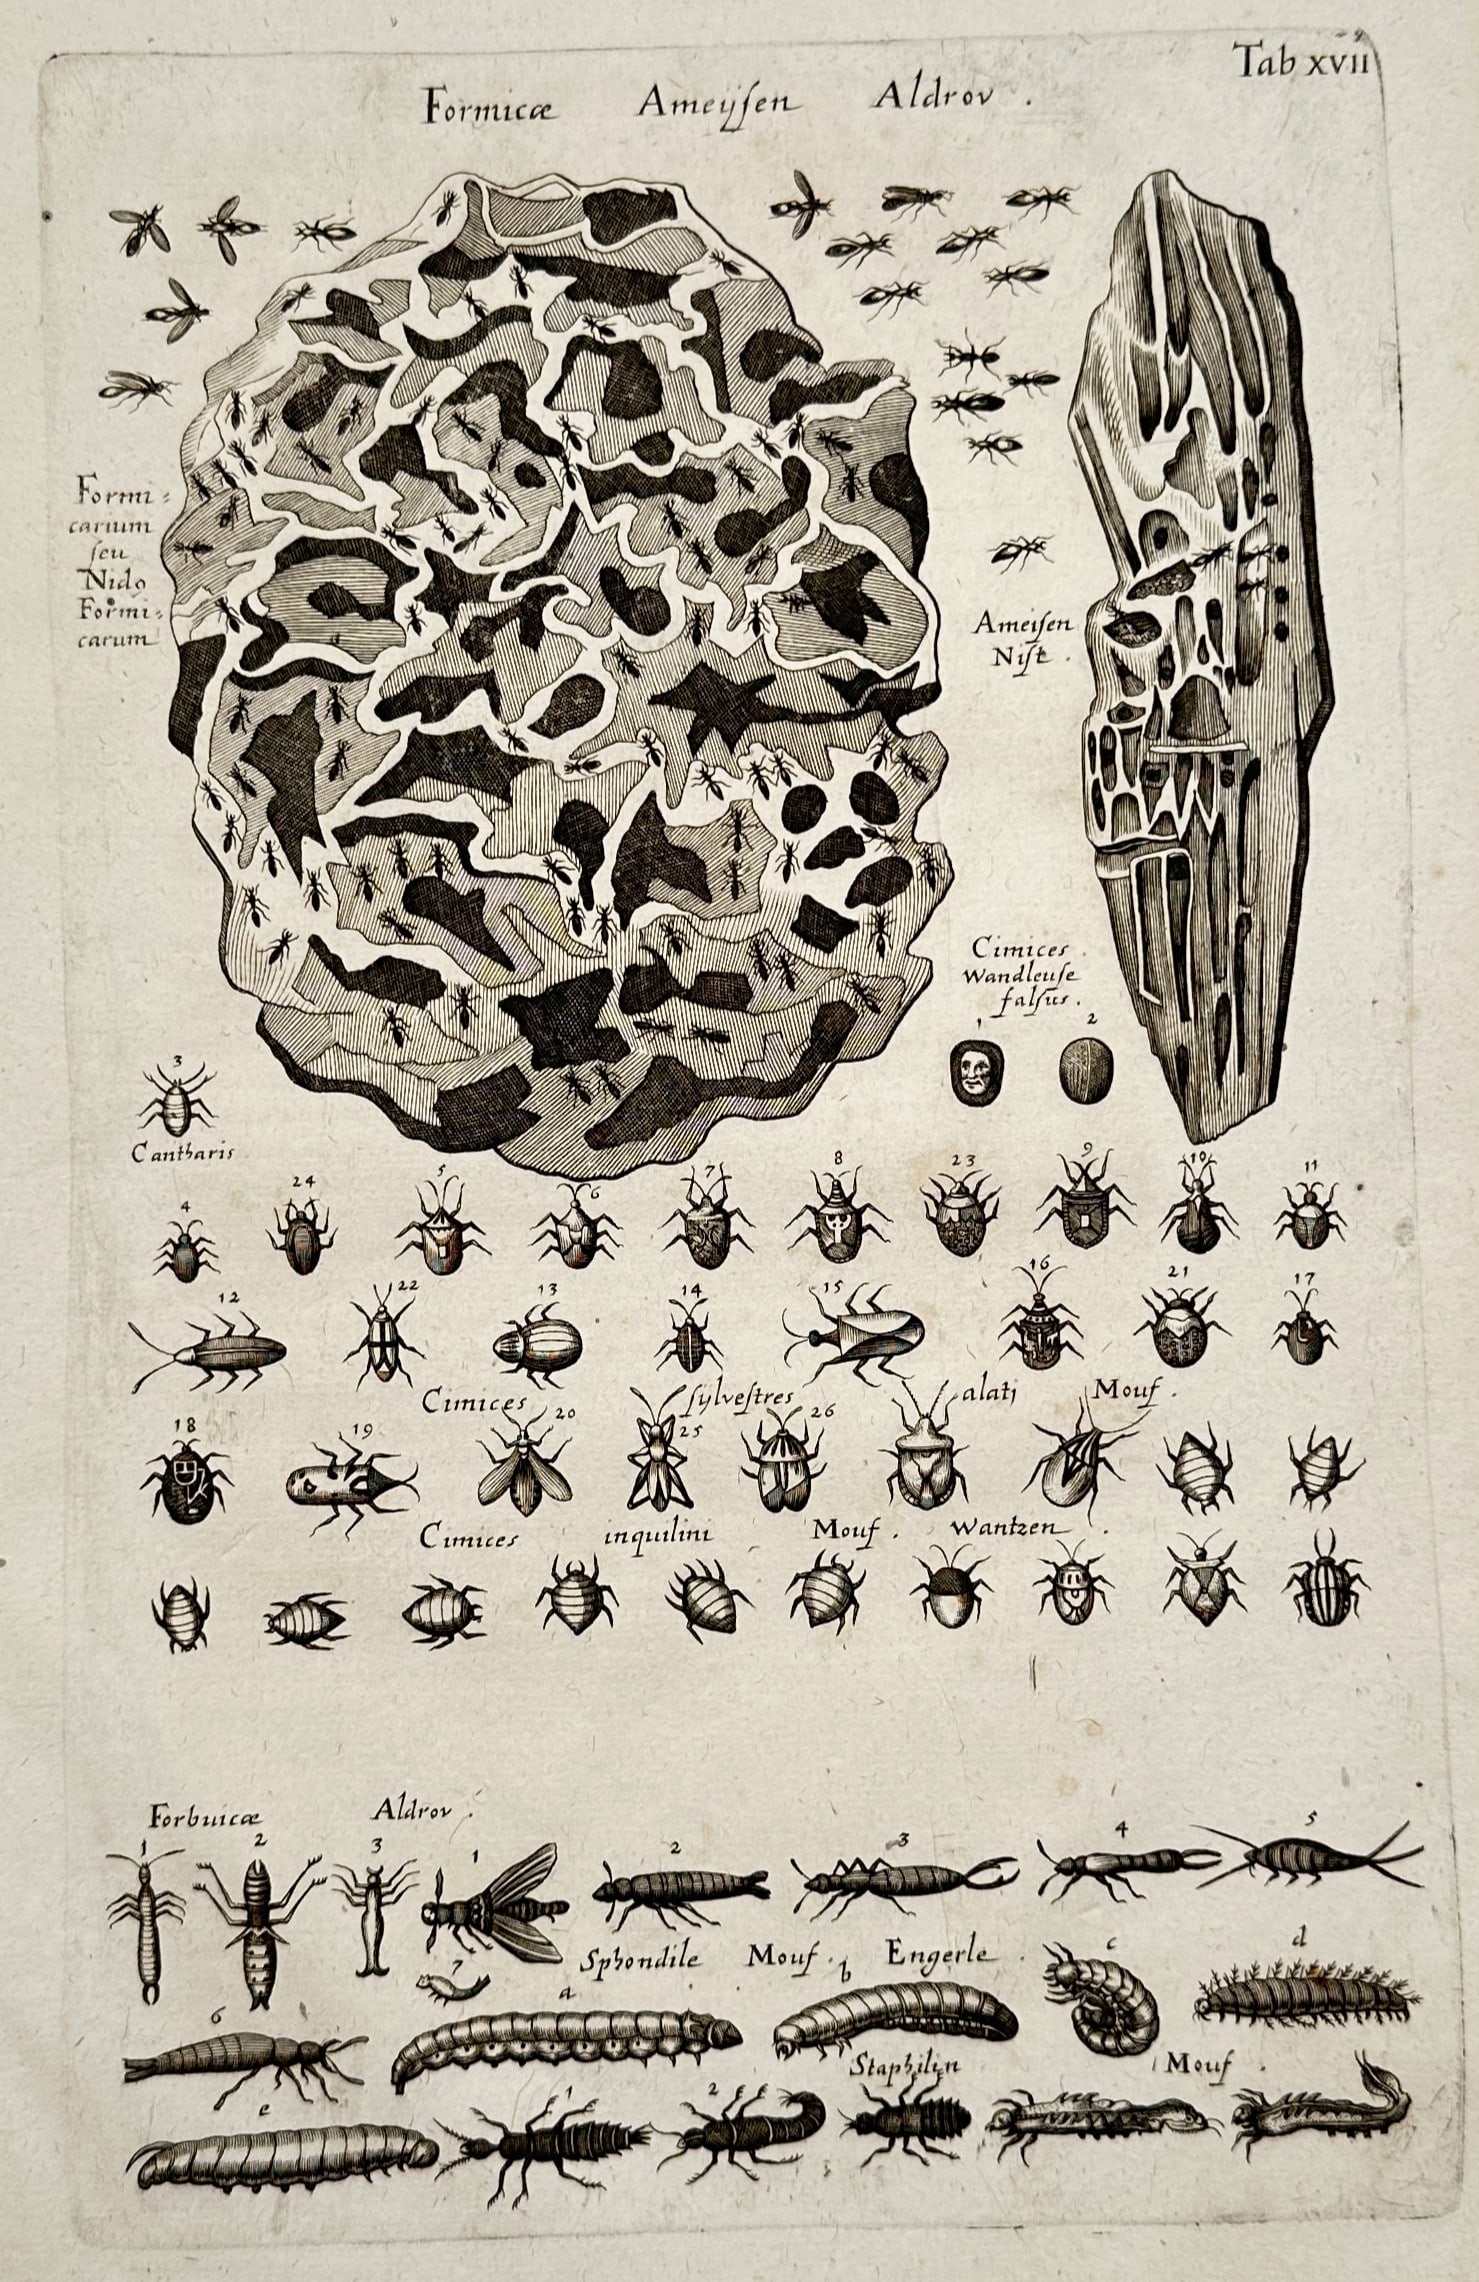 Tab xvii
Formicæ Ameÿſen Aldrov .
Formi:
carium
ſeu
Nidꝰ
Formi:
carum
Ameiſen
Niſt .
Cimices .
Wandleuſe
falſus .
1 2
3
Cantharis
4 24 5 6 7 8 23 9 10 11
12 22 13 14 15 16 21 17
Cimices ſylveſtres alatj Mouf .
18 19 20 25 26
Cimices inquilini Mouf . Wantzen .
Forbuicæ Aldrov .
1 2 3 1 2 3 4 5
Sphondile Mouf . Engerle .
7
6 a b c d
Staphilin Mouf .
e 1 2